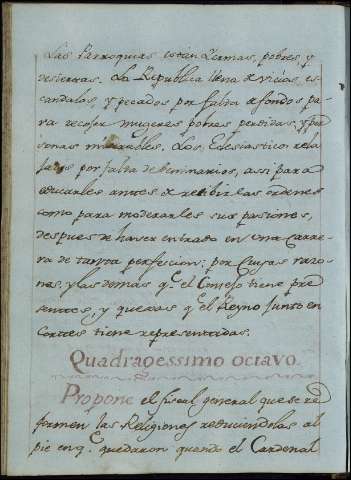 Las Parroquias están Yermas, pobres, y
desiertas. La Republica llena de vicios, es
candalos, y pecados por falta de fondos pa
ra recojer mugeres pobres perdidas, y per
sonas miserables. Los Eclesiasticos rela
jados por falta de Seminarios, assi para
educarles antes de recibir las ordenes
como para moderarles sus pasiones,
despues de haver entrado en una Carre
ra de tanta perfeccion: por Cuyas razo
nes, y las demas q.e el Consejo tiene pre
sentes, y quexas q.e el Reyno junto en
Cortes tiene representadas.
Quadragessimo octavo.
Propone el fiscal general que se re
formen las Religiones reduciendolas al
pie en q.e quedaron quando el Cardenal